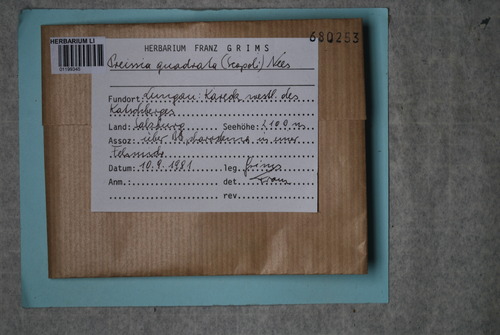 680253
HERBARIUM LI
HERBARIUM FRANZ GRIMS
Preissia quadrata (Scopoli) Nees
Fundort: Lungau: Kareck westl. des
Katschberges
Land: Salzburg Seehöhe: 2100 m
Assoz: über
Datum: 10.9.1981 leg. Grims
Anm.: det. Franz
rev.